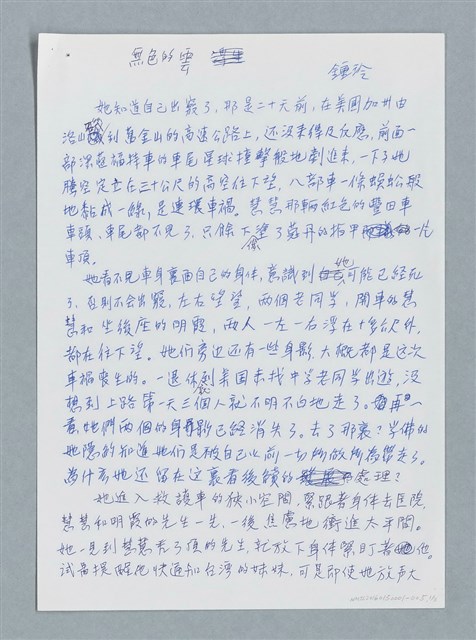 無色的雲
鍾玲
她知道自己出竅了,那是二十天前,在美國加州由
洛山磯到舊金山的高速公路上,還沒來得及反應,前面一
部深藍福特車的車尾星球撞擊般地刺進來,一下子她
騰空定立在三十公尺的高空往下望,八部車一條蜈蚣般
地黏成一線,是連環車禍。慧慧那輛紅色的豐田車
車頭、車尾都不見了,只餘下像塗了蔻丹的指甲一片
車頂。
她看不見車身裏面自己的身体,意識到她可能已經死
了,否則不會出竅,左右望望,兩個老同學,開車的慧
慧和坐後座的明霞,兩人一左一右浮在十多公尺外,
都在往下望。她們旁边还有一些身影,大概都是这次
車禍喪生的。一退休就到美国來找中学老同学出遊,没
想到上路第一天三個人就不明不白地走了。再一
看她們兩個的身影已經消失了。去了那裏?学佛的
她隱約知道她們是被自己以前一切所做所為帶走了。
為什麼她还留在这裏看後續的處理?
她進入救護車的狹小空間,緊跟著身体去醫院,
慧慧和明霞的先生一先、一後焦慮地衝進太平間。
她一見到慧慧禿了頂的先生,就放下身体緊盯著他。
試着提醒他快通知台湾的妹妹,可是即使她放大